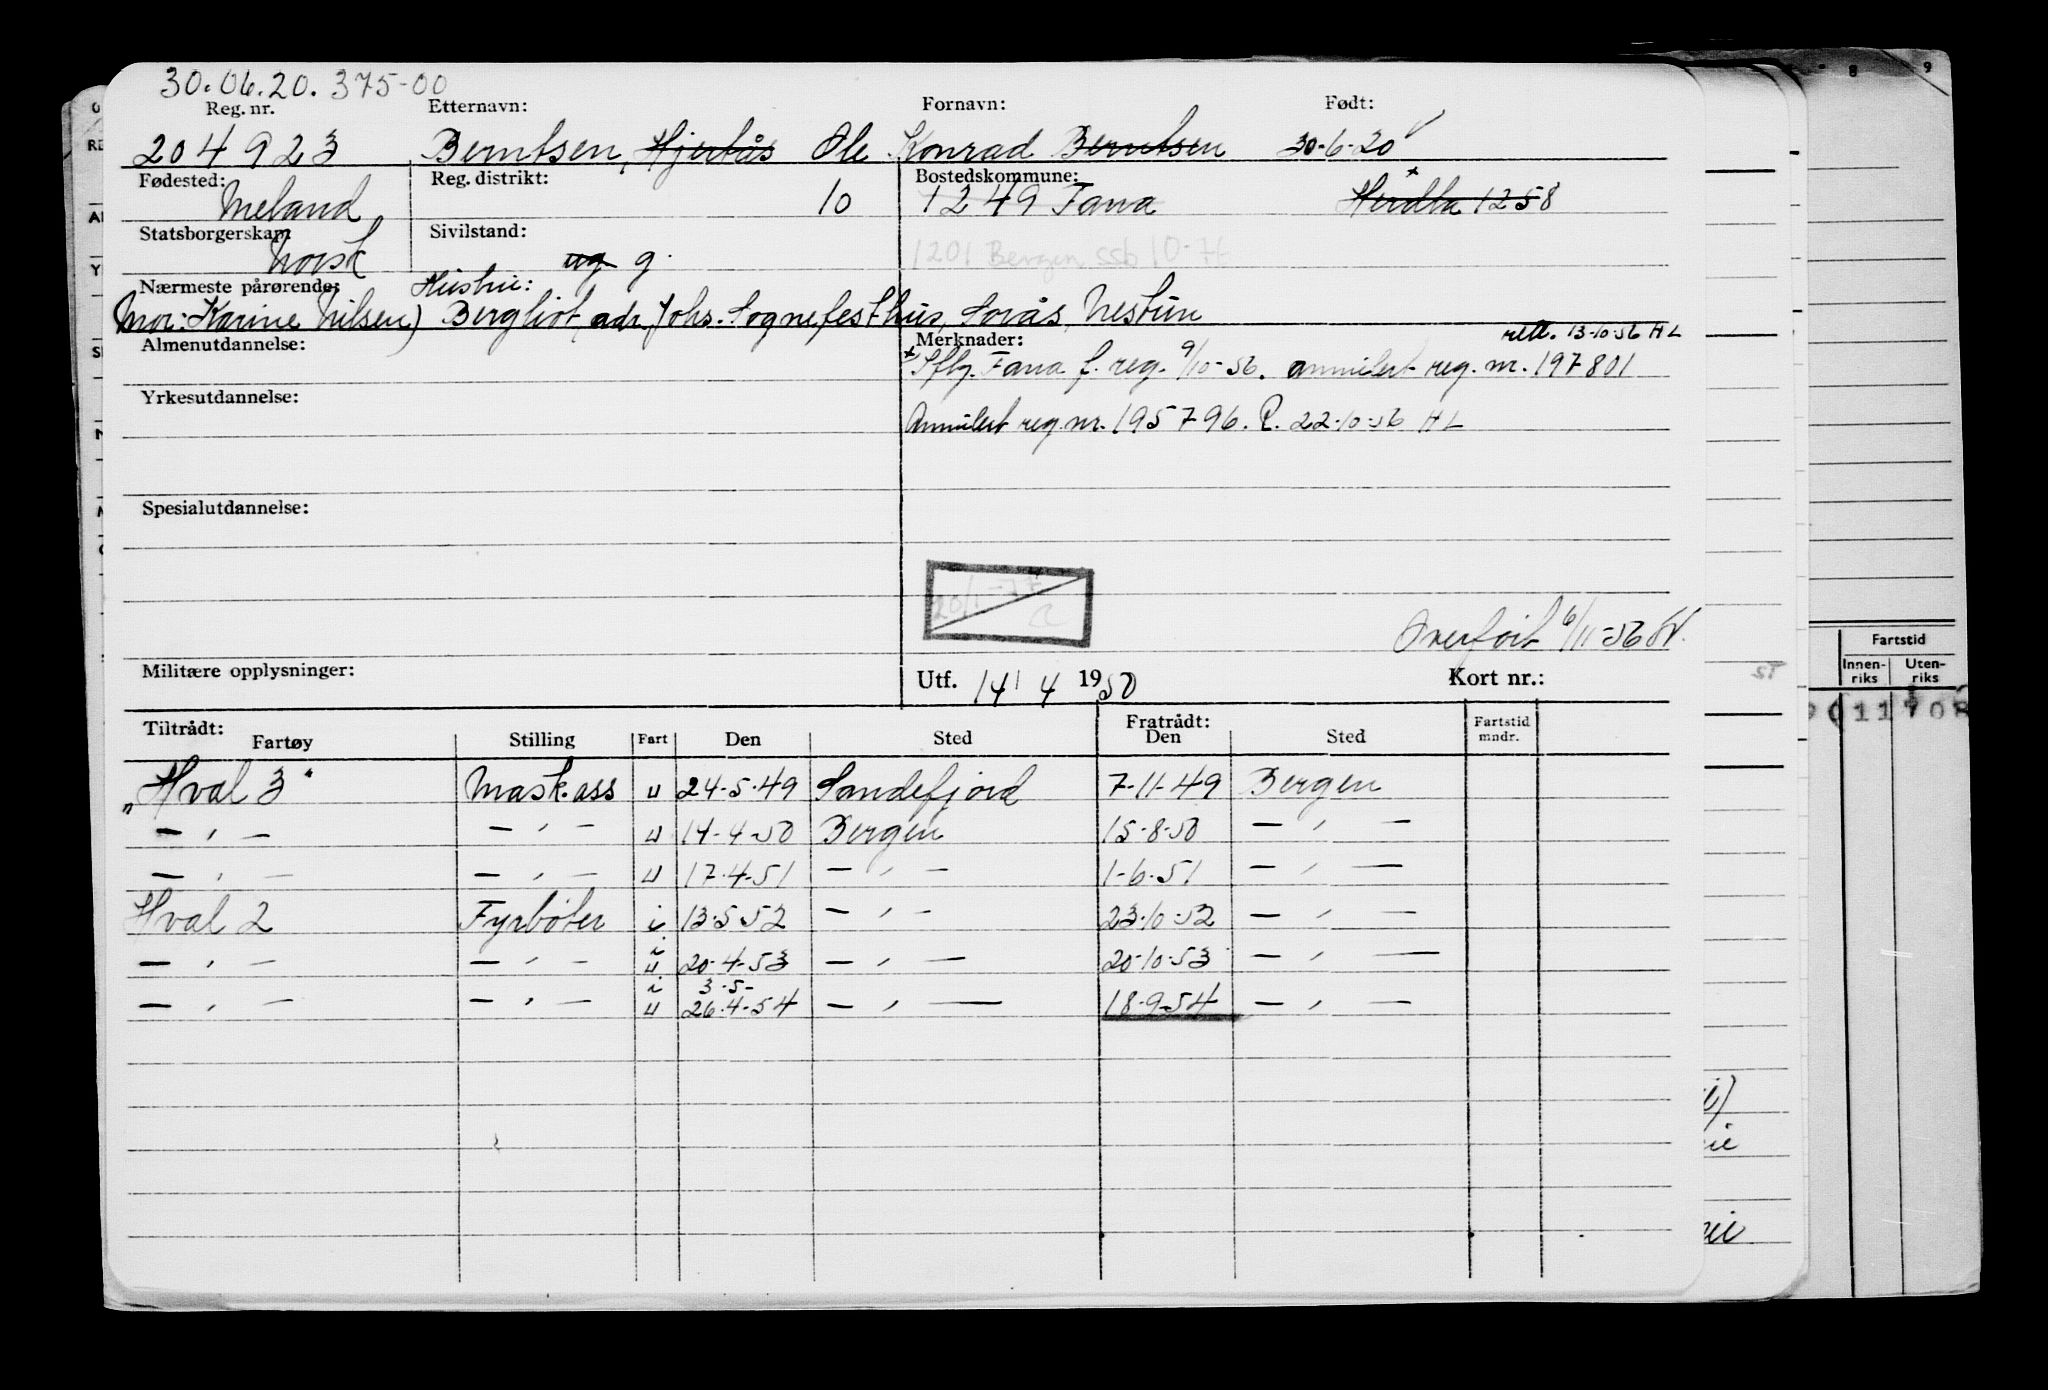 30.06.20. 375-00
Reg. nr. Etternavn: Fornavn: Født:
204923 Berntsen, Hjertås Ole Konrad Berntsen 30-6-20
Fødested: Reg. distrikt: Bostedskommune:
Meland 10 1249 Fana Herdla 1258
Statsborgerskap Sivilstand:
norsk ug g. 1201 Bergen ssb 10-
Nærmeste pårørende: Hustru:
Mor: Karine Nilsen) Bergliot, adr. Johs. Sognefesthus, Sørås, Nestun
Almenutdannelse: Merknader: rett. 13-10-56 HL
x Sfby. Fana f. reg. 9/10-56. annulert reg. nr. 197801
Yrkesutdannelse:
Annulert reg. nr. 195796. P. 22-10-56 HL
Spesialutdannelse:
20/1-77
Overført 6/11-56
Militære opplysninger: Utf. 14/4 1950 Kort nr.:
Tiltrådt: Fratrådt:
Fartøy Stilling Fart Den Sted Den Sted Fartstid mndr.
"Hval 3" Mask.ass u 24-5-49 Sandefjord 7-11-49 Bergen
— " — — " — u 14-4-50 Bergen 15-8-50 — " —
— " — — " — u 17-4-51 — " — 1-6-51 — " —
Hval 2 Fyrbøter i 13-5-52 — " — 23-10-52 — " —
— " — — " — i u 20-4-53 — " — 20-10-53 — " —
i 3-5-
— " — — " — u 26-4-54 — " — 18-9-54 — " —
8 9
Fartstid
Innen-riks Uten-riks